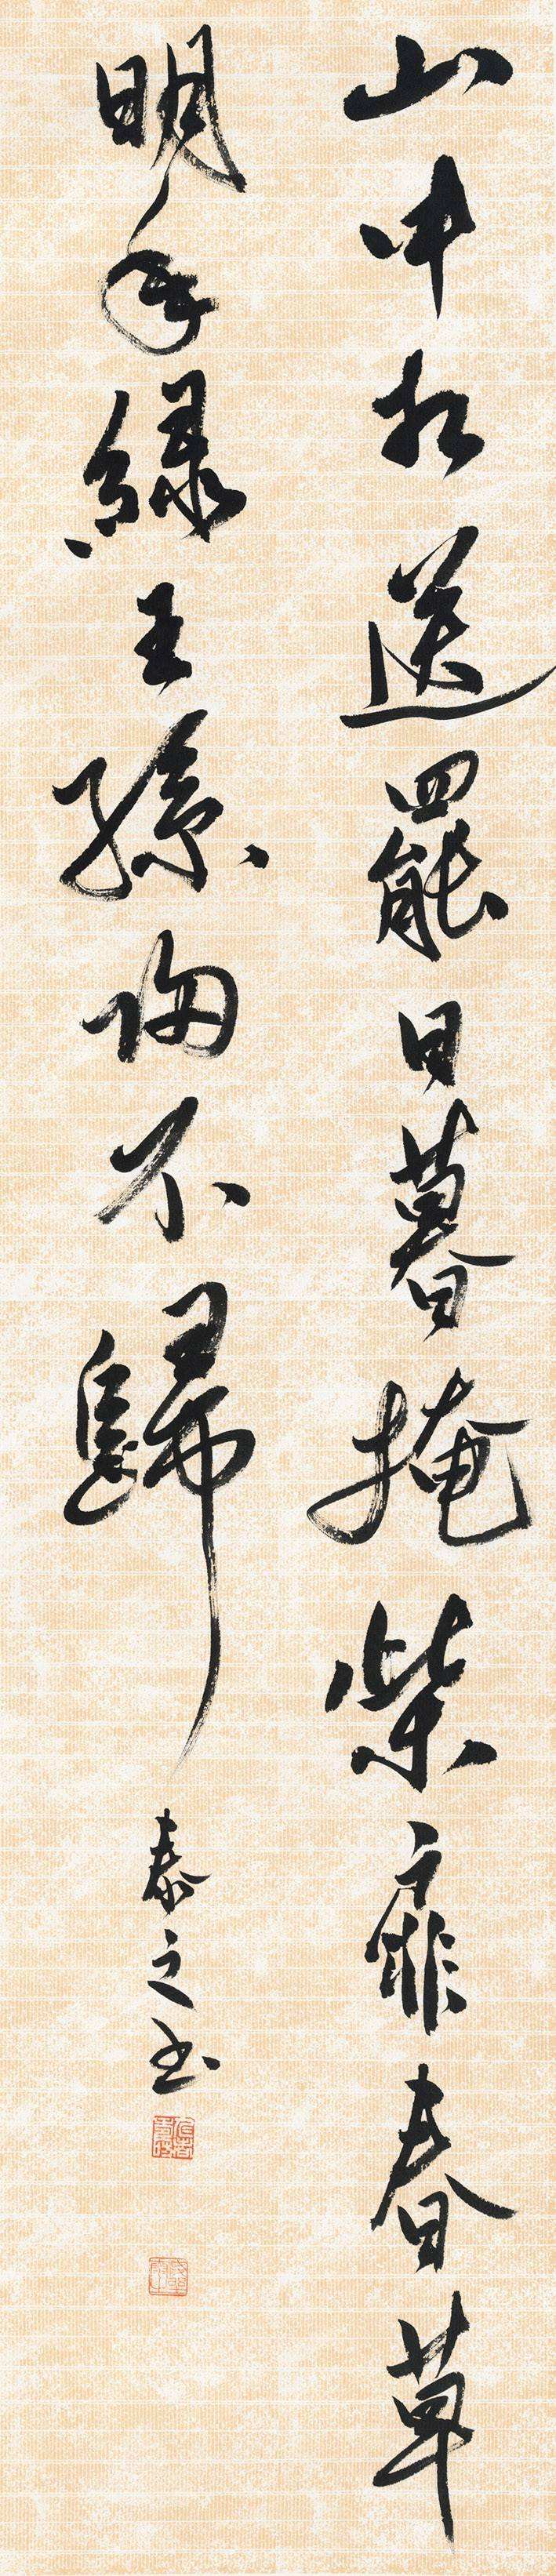 山中相送罷日暮掩柴扉春草
明年綠王孫歸不歸
泰之书